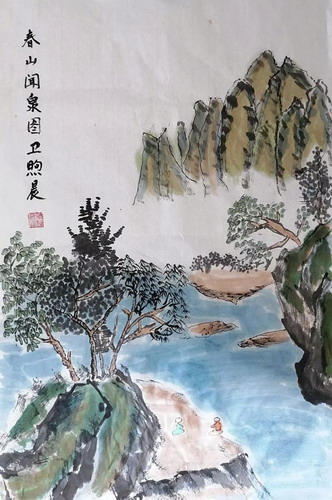 春山闻泉图卫煦晨